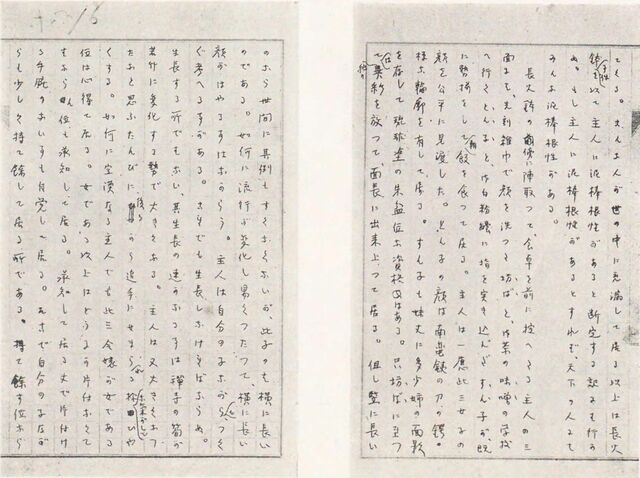 こんな人が世の中に充満して居る以上は長火
鉢を以て主人に泥棒根性があると断定する訳にも行か
ぬ。もし主人に泥棒根性があるとすれば、天下の人はみ
みんな泥棒根性がある。
長火鉢の傍に陣取って、食卓を前に控へたる主人の三
面には、先刻雑巾で顔を洗つた坊ばと御茶の味噌の学校
へ行くとん子と御白粉罎に指を突き込んだすん子が既
に勢揃をして朝飯を食つて居る。主人は一応此三女子の
顔を公平に見渡した。とん子の顔は南蛮鉄の刀の鍔の
様な輪郭を有して居る。すん子も妹丈に多少姉の面影
を存して琉球塗の朱盆位な資格はある。只坊ばに至つ
ては独り異彩を放つて、面長に出来上つて居る。但し竪に長い
のなら世間に其例もすくなくないが、此子のは横に長い
のである。如何に流行が変化し易くつたつて、横に長い
顔がはやる事はなからう。主人は自分の子ながらもつく
づく考へる事がある。これでも生長しなければならぬ。
生長する所でもない其生長の速かなる事は禅寺の筍が
若竹に変化する勢で大きくなる。主人は又大きくなつ
たなと思ふたんびに後ろから追手にせまられる様な気がしてひや
ひやする。如何に空漠なる主人でも此三令嬢が女である
位は心得て居る。女である以上はどうにか片付なくて
はならん位も承知して居る。承知して居る丈で片付け
る手腕のない事も自覚して居る。そこで自分の子なが
らも少しく持て余して居る所である。持て余す位なら